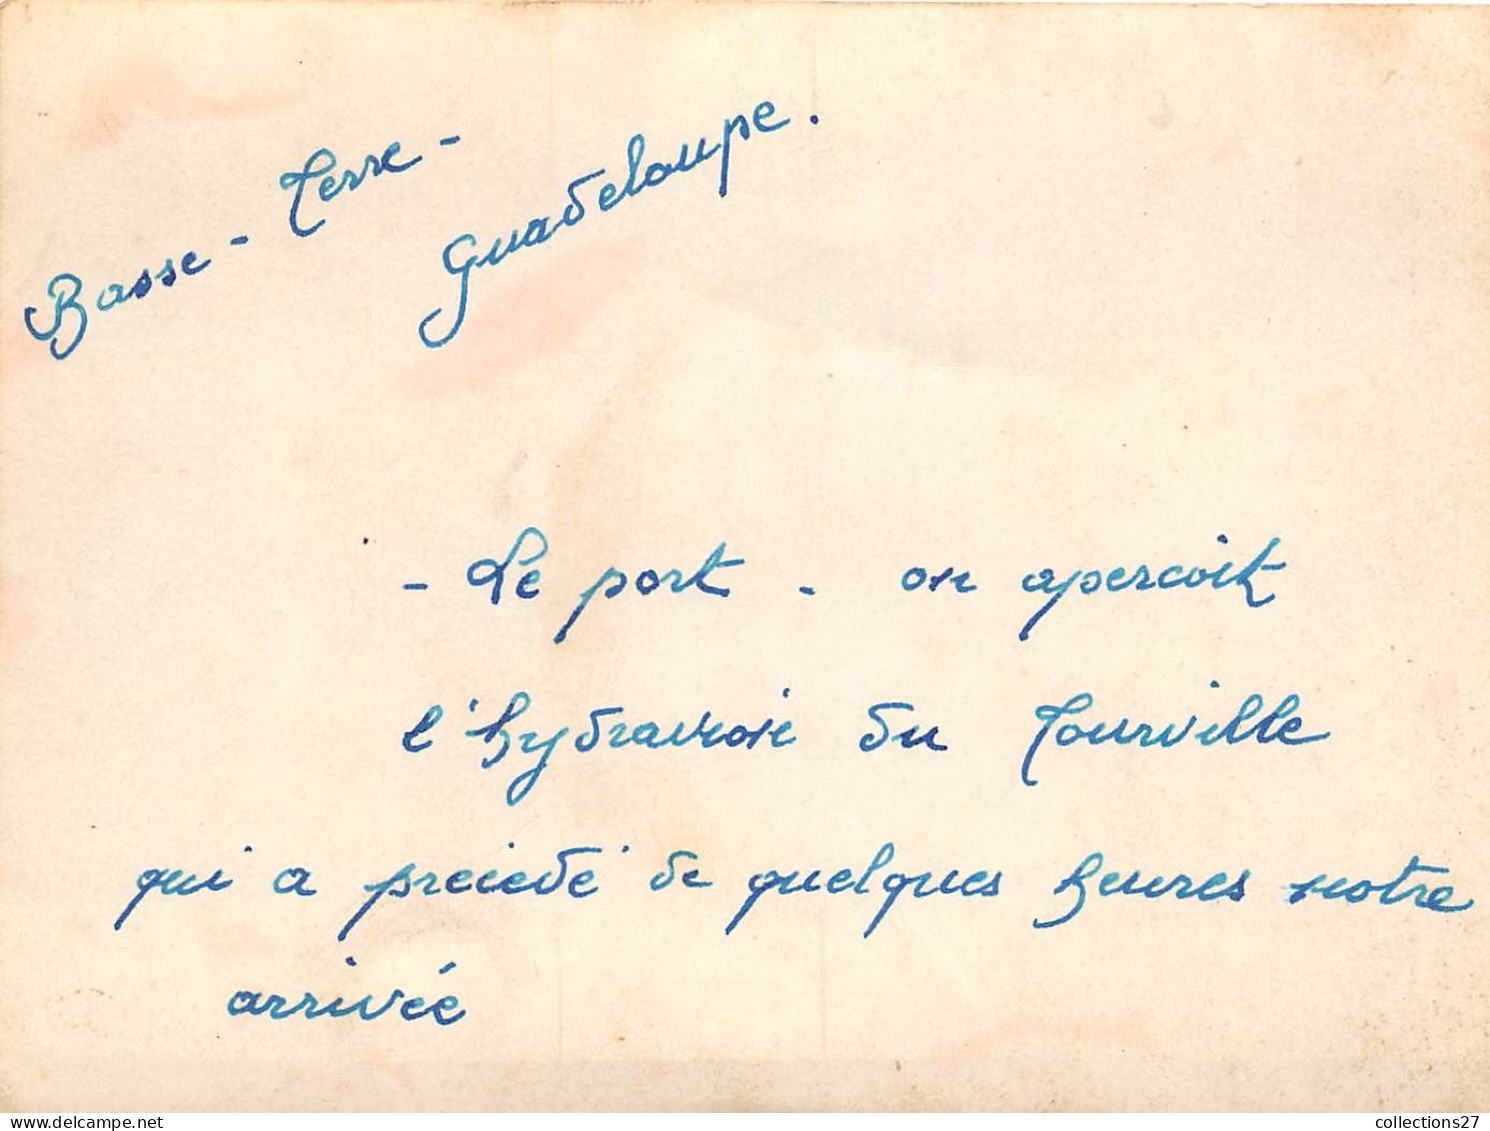 Basse - Terre -
Guadeloupe.
- Le port - on apercoit
l'hydravion du Tourville
qui a precedé de quelques heures notre
arrivée
collections27